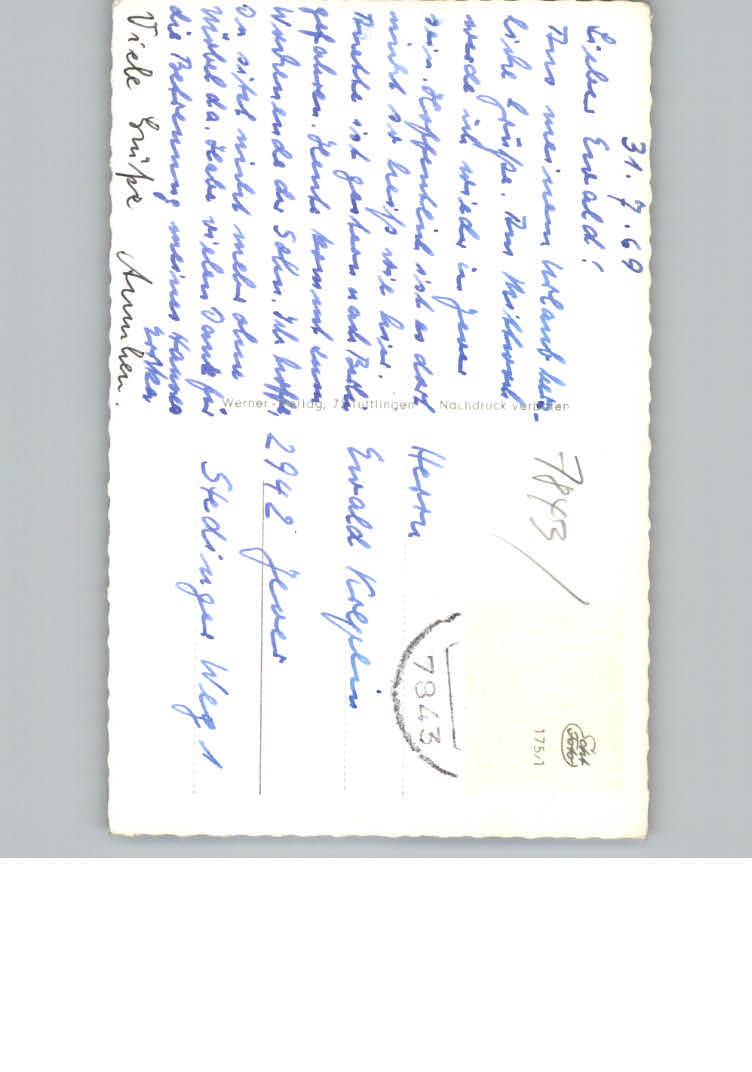 31.7.69
Lieber Ewald!
Aus meinem Urlaub herz-
liche Grüße. Am Mittwoch
werde ich wieder in Jever
sein. Hoffentlich ist es dort
nicht so heiß wie hier.
ist gestern nach
gefahren. Heute kommt zum
Wochenende der Sohn. Ich hoffe,
Du sitzt nicht mehr ohne
Möbel da. Habe vielen Dank für
die Betreuung meines Hauses
Viele Grüße Annchen.
Werner-Verlag, 72 Tuttlingen Nachdruck verboten
7843
Herrn
Ewald
2942 Jever
Stedinger Weg 1
7843
Echt
Foto
175/1